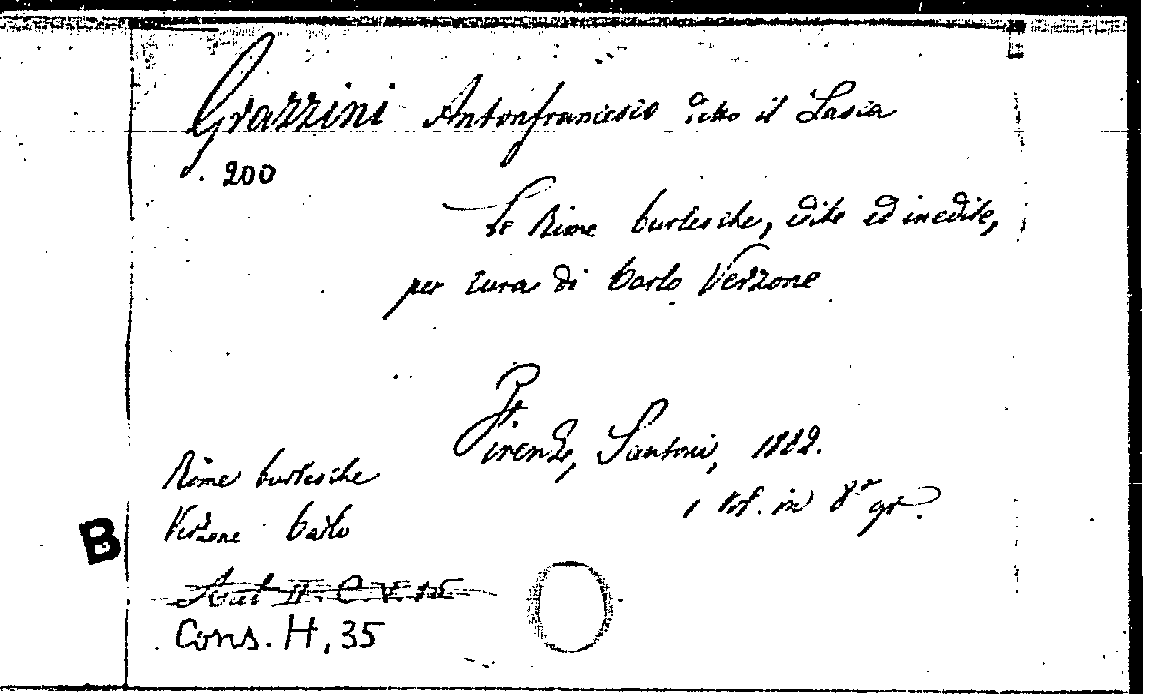 Grazzini Antonfrancesco detto il Lasca
200
Le Rime burlesche, edite ed inedite,
per cura di Carlo Verzone
Firenze, Sansoni, 1882.
1 vol. in 8° gr.
Rime burlesche
Verzone Carlo
B
Cons. H, 35